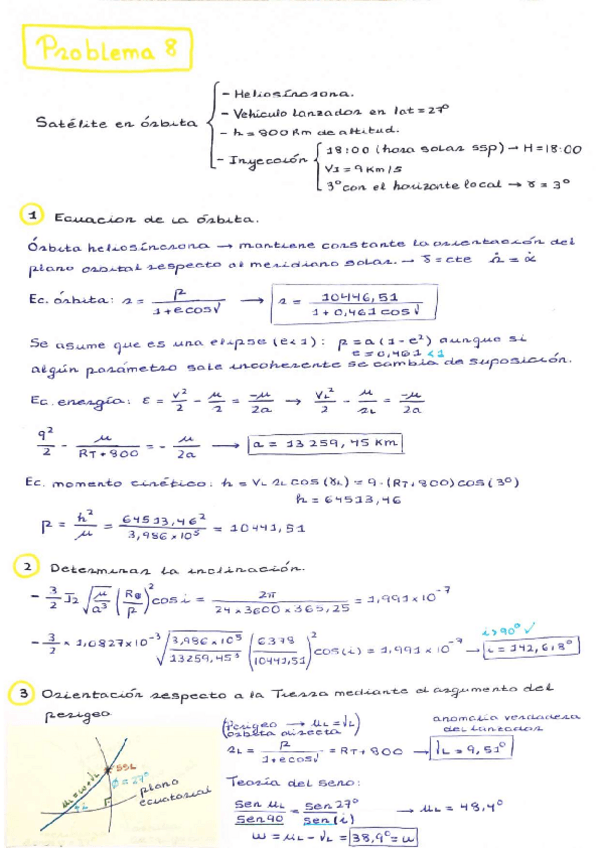 Problema 8
Satélite en órbita
- Heliosíncrona.
- Vehículo lanzador en lat = 27º
- h = 800 Km de altitud.
- Inyección
18:00 (hora solar SSP) → H = 18:00
V1 = 9 Km/s
3º con el horizonte local → γ = 3º
1 Ecuacion de la órbita.
Órbita heliosíncrona → mantiene constante la orientación del
plano orbital respecto al meridiano solar. → γ = cte Ω̇ = α̇
Ec. órbita: r = p / (1 + e cos ν) → r = 10446,51 / (1 + 0,461 cos ν)
Se asume que es una elipse (e<1): p = a(1 - e²) aunque si
e = 0,461 < 1
algún parámetro sale incoherente se cambia de suposición.
Ec. energía: ε = v²/2 - μ/r = -μ/2a → v_L²/2 - μ/r_L = -μ/2a
9²/2 - μ/(R_T + 800) = - μ/2a → a = 13259,45 Km
Ec. momento cinético: h = v_L r_L cos(γ_L) = 9 · (R_T + 800) cos(3º)
h = 64513,46
p = h²/μ = 64513,46² / 3,986×10⁵ = 10441,51
2 Determinar la inclinación.
- 3/2 J₂ √(μ/a³) (R⊕/p)² cos i = 2π / (24×3600×365,25) = 1,991×10⁻⁷
- 3/2 × 1,0827×10⁻³ √(3,986×10⁵ / 13259,45³) (6378 / 10441,51)² cos(i) = 1,991×10⁻⁷ → i = 142,618º
i > 90º ✓
3 Orientación respecto a la Tierra mediante el argumento del
perigeo
(Perigeo → u_L = ν_L)
(órbita directa)
anomalía verdadera
del lanzador
r_L = p / (1 + e cos ν) = R_T + 800 → ν_L = 9,51º
Teoría del seno:
sen u_L / sen 90 = sen 27º / sen(i) → u_L = 48,4º
ω = u_L - ν_L = 38,9º = ω
SSL
ϕ = 27º
u_L = ω + ν_L
plano
ecuatorial